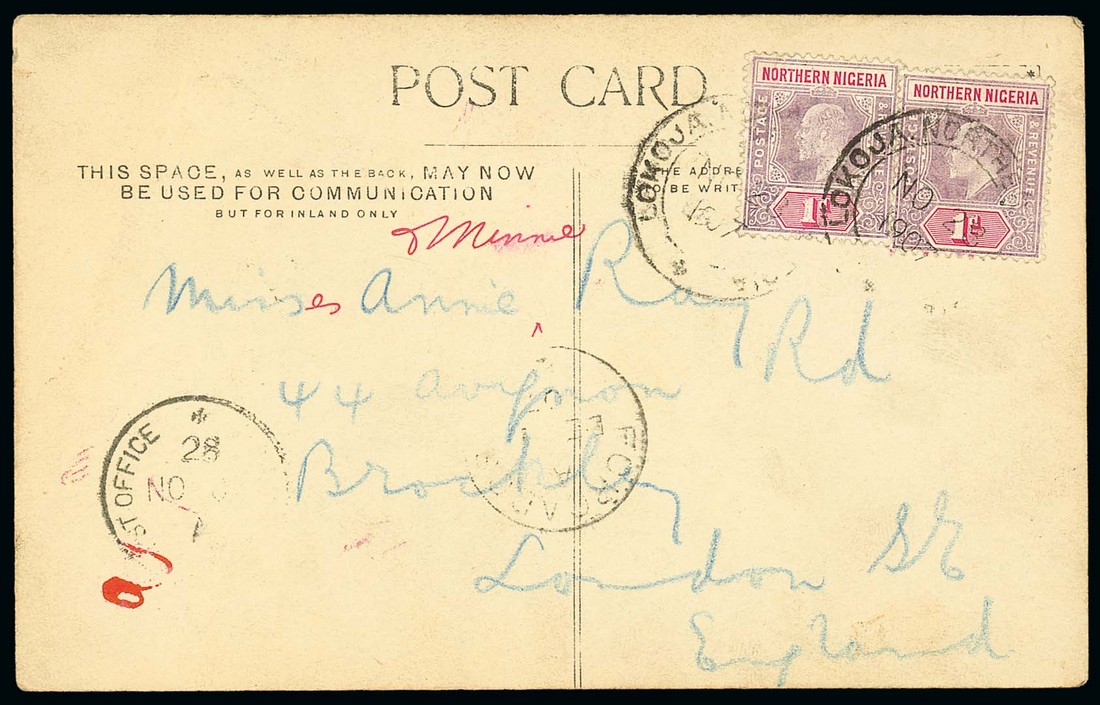 POST CARD
THIS SPACE, AS WELL AS THE BACK, MAY NOW
BE USED FOR COMMUNICATION
BUT FOR INLAND ONLY
THE ADDRE
BE WRIT
NORTHERN NIGERIA
POSTAGE
1d
NORTHERN NIGERIA
& REVENUE
1d
LOKOJA
LOKOJA NORTHE
NO 28
190
& Minnie
Misses Annie Ray
44 Avignon Rd
Brockley
London SE
England
ST OFFICE
28
NO